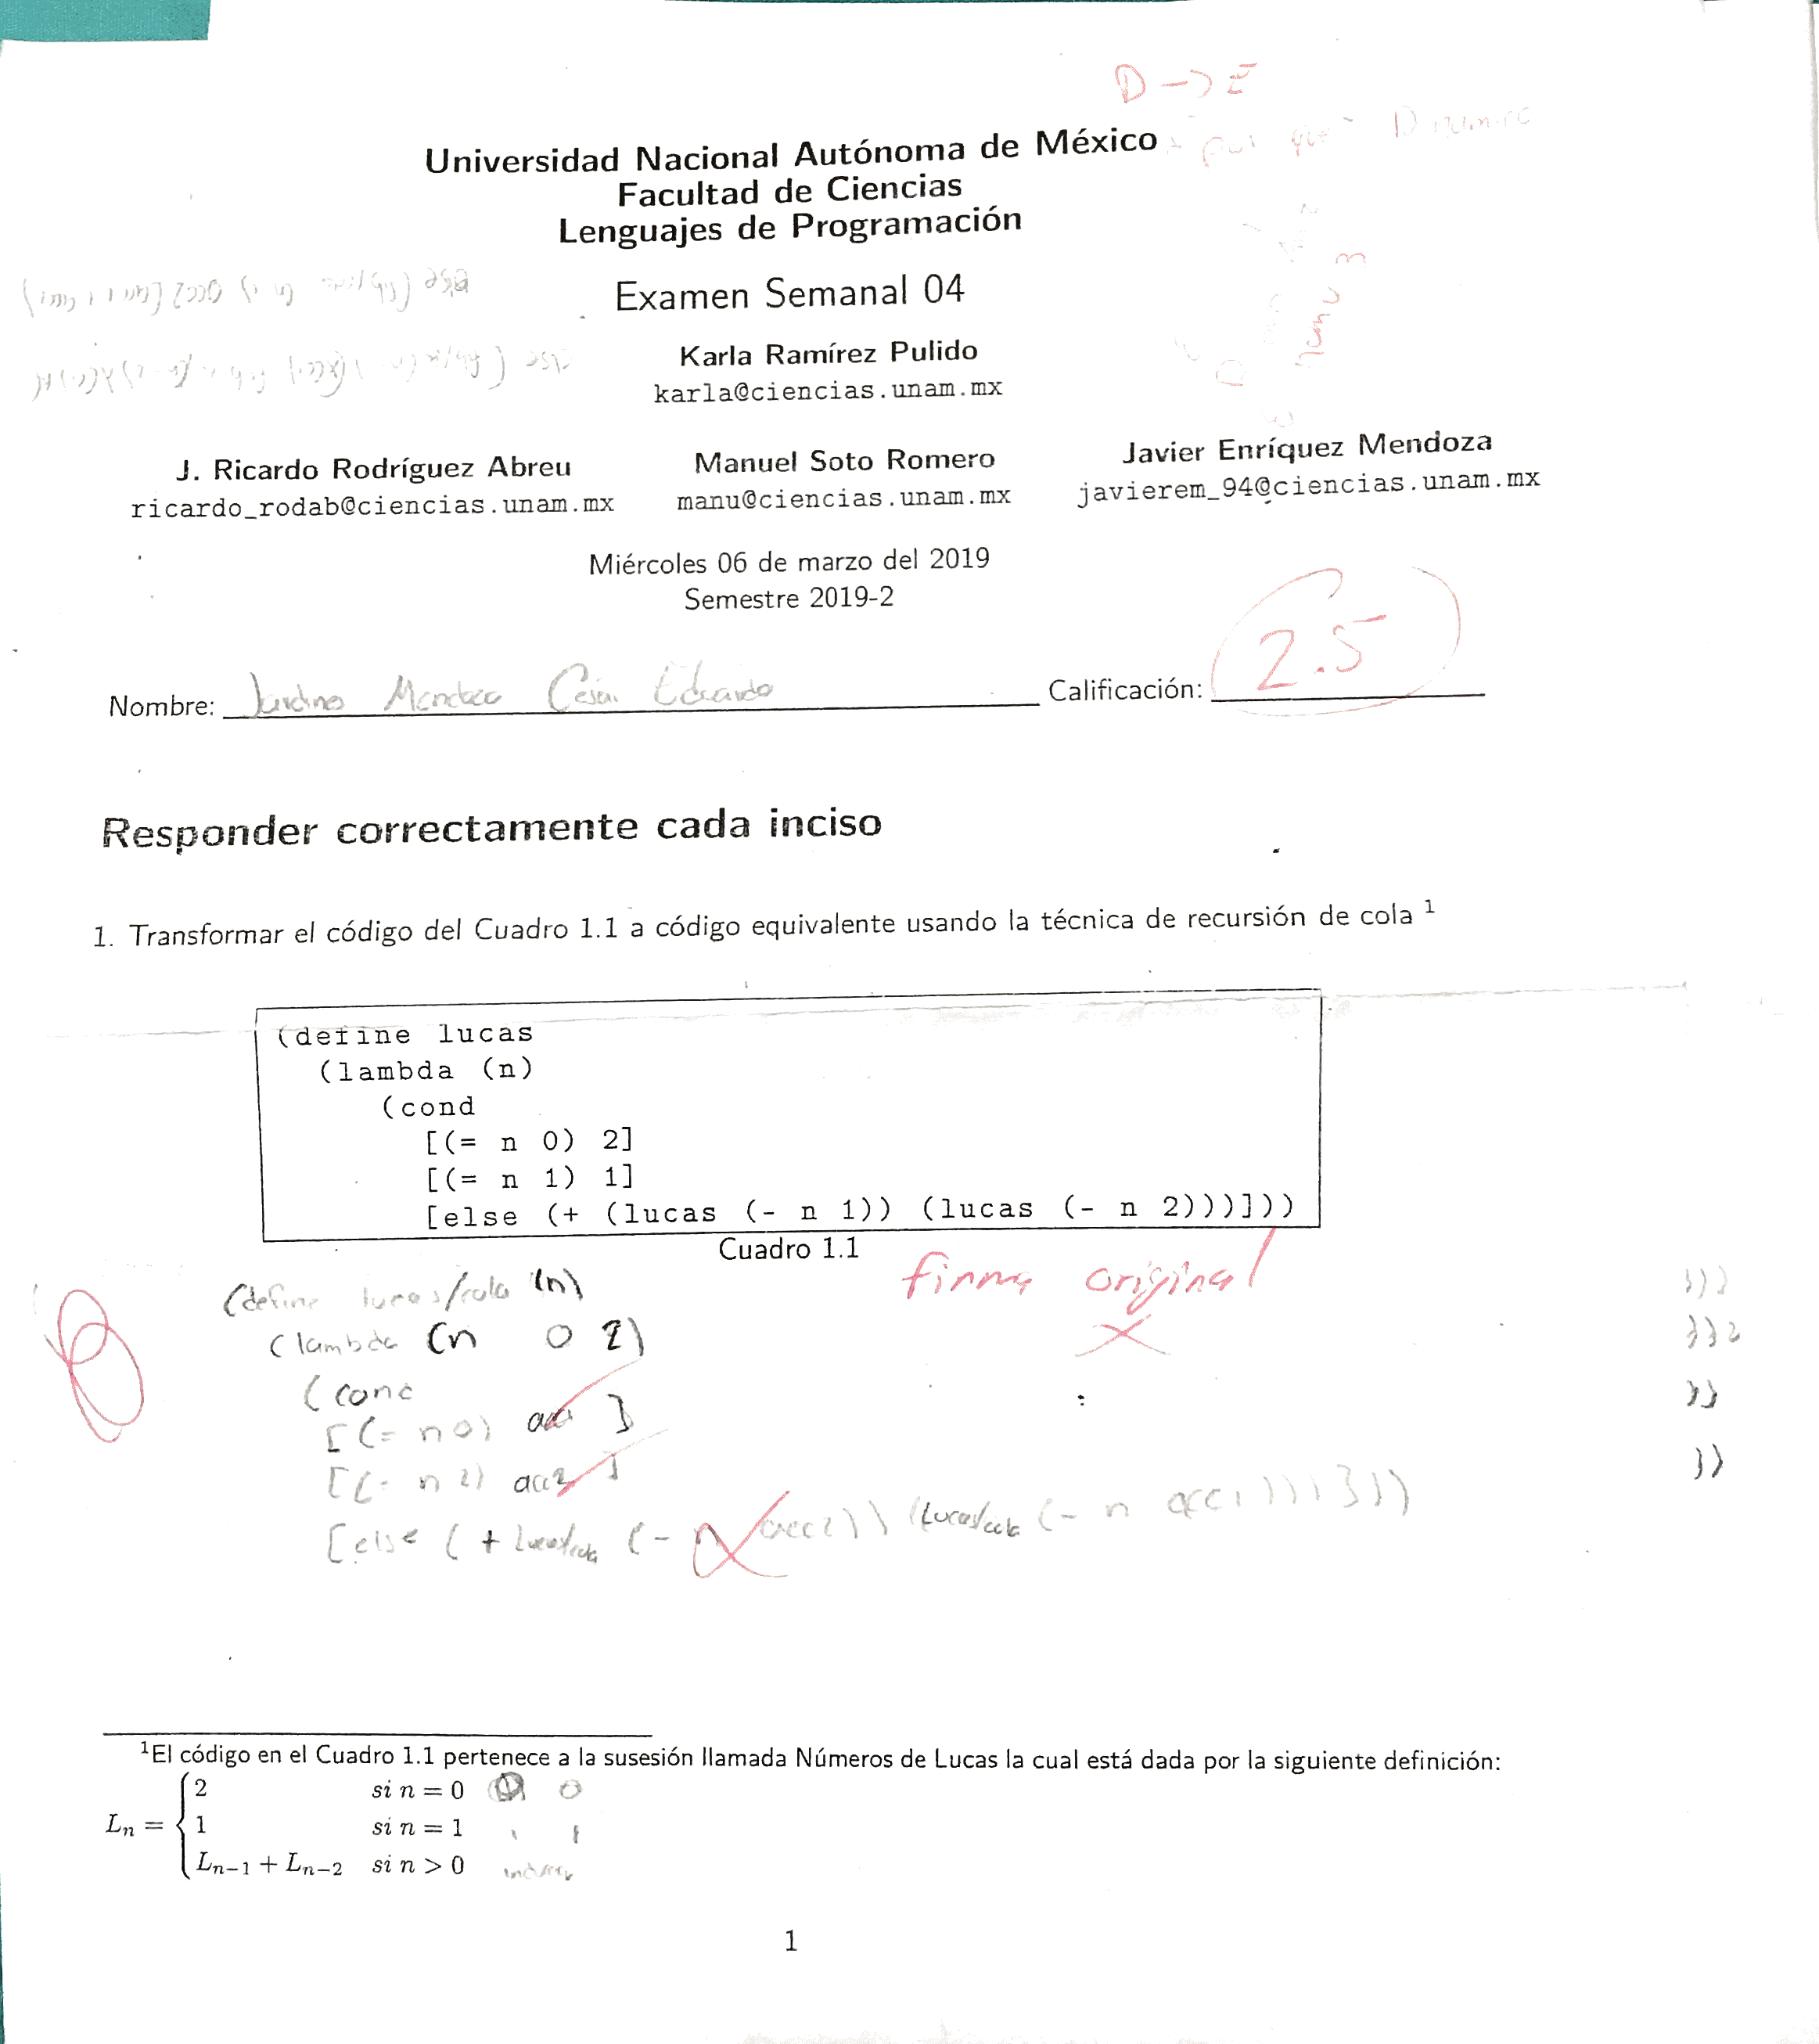 D -> E
por que Dinamico
Universidad Nacional Autónoma de México
Facultad de Ciencias
Lenguajes de Programación
Examen Semanal 04
Karla Ramírez Pulido
karla@ciencias.unam.mx
J. Ricardo Rodríguez Abreu
ricardo_rodab@ciencias.unam.mx
Manuel Soto Romero
manu@ciencias.unam.mx
Javier Enríquez Mendoza
javierem_94@ciencias.unam.mx
Miércoles 06 de marzo del 2019
Semestre 2019-2
Nombre: Mendoza César Eduardo Calificación: 2.5
Responder correctamente cada inciso
1. Transformar el código del Cuadro 1.1 a código equivalente usando la técnica de recursión de cola 1
(define lucas
(lambda (n)
(cond
[(= n 0) 2]
[(= n 1) 1]
[else (+ (lucas (- n 1)) (lucas (- n 2)))]))
Cuadro 1.1
firma original
(define lucas/cola (n)
(lambda (n 0 2)
(cond
[(= n 0) acc ]
[(= n 2) acc2 ]
[else (+ lucas/cola (- n acc2)) (lucas/cola (- n acc1)))]))
1El código en el Cuadro 1.1 pertenece a la susesión llamada Números de Lucas la cual está dada por la siguiente definición:
2 si n = 0 0
Ln = { 1 si n = 1 1
Ln−1 + Ln−2 si n > 0
1